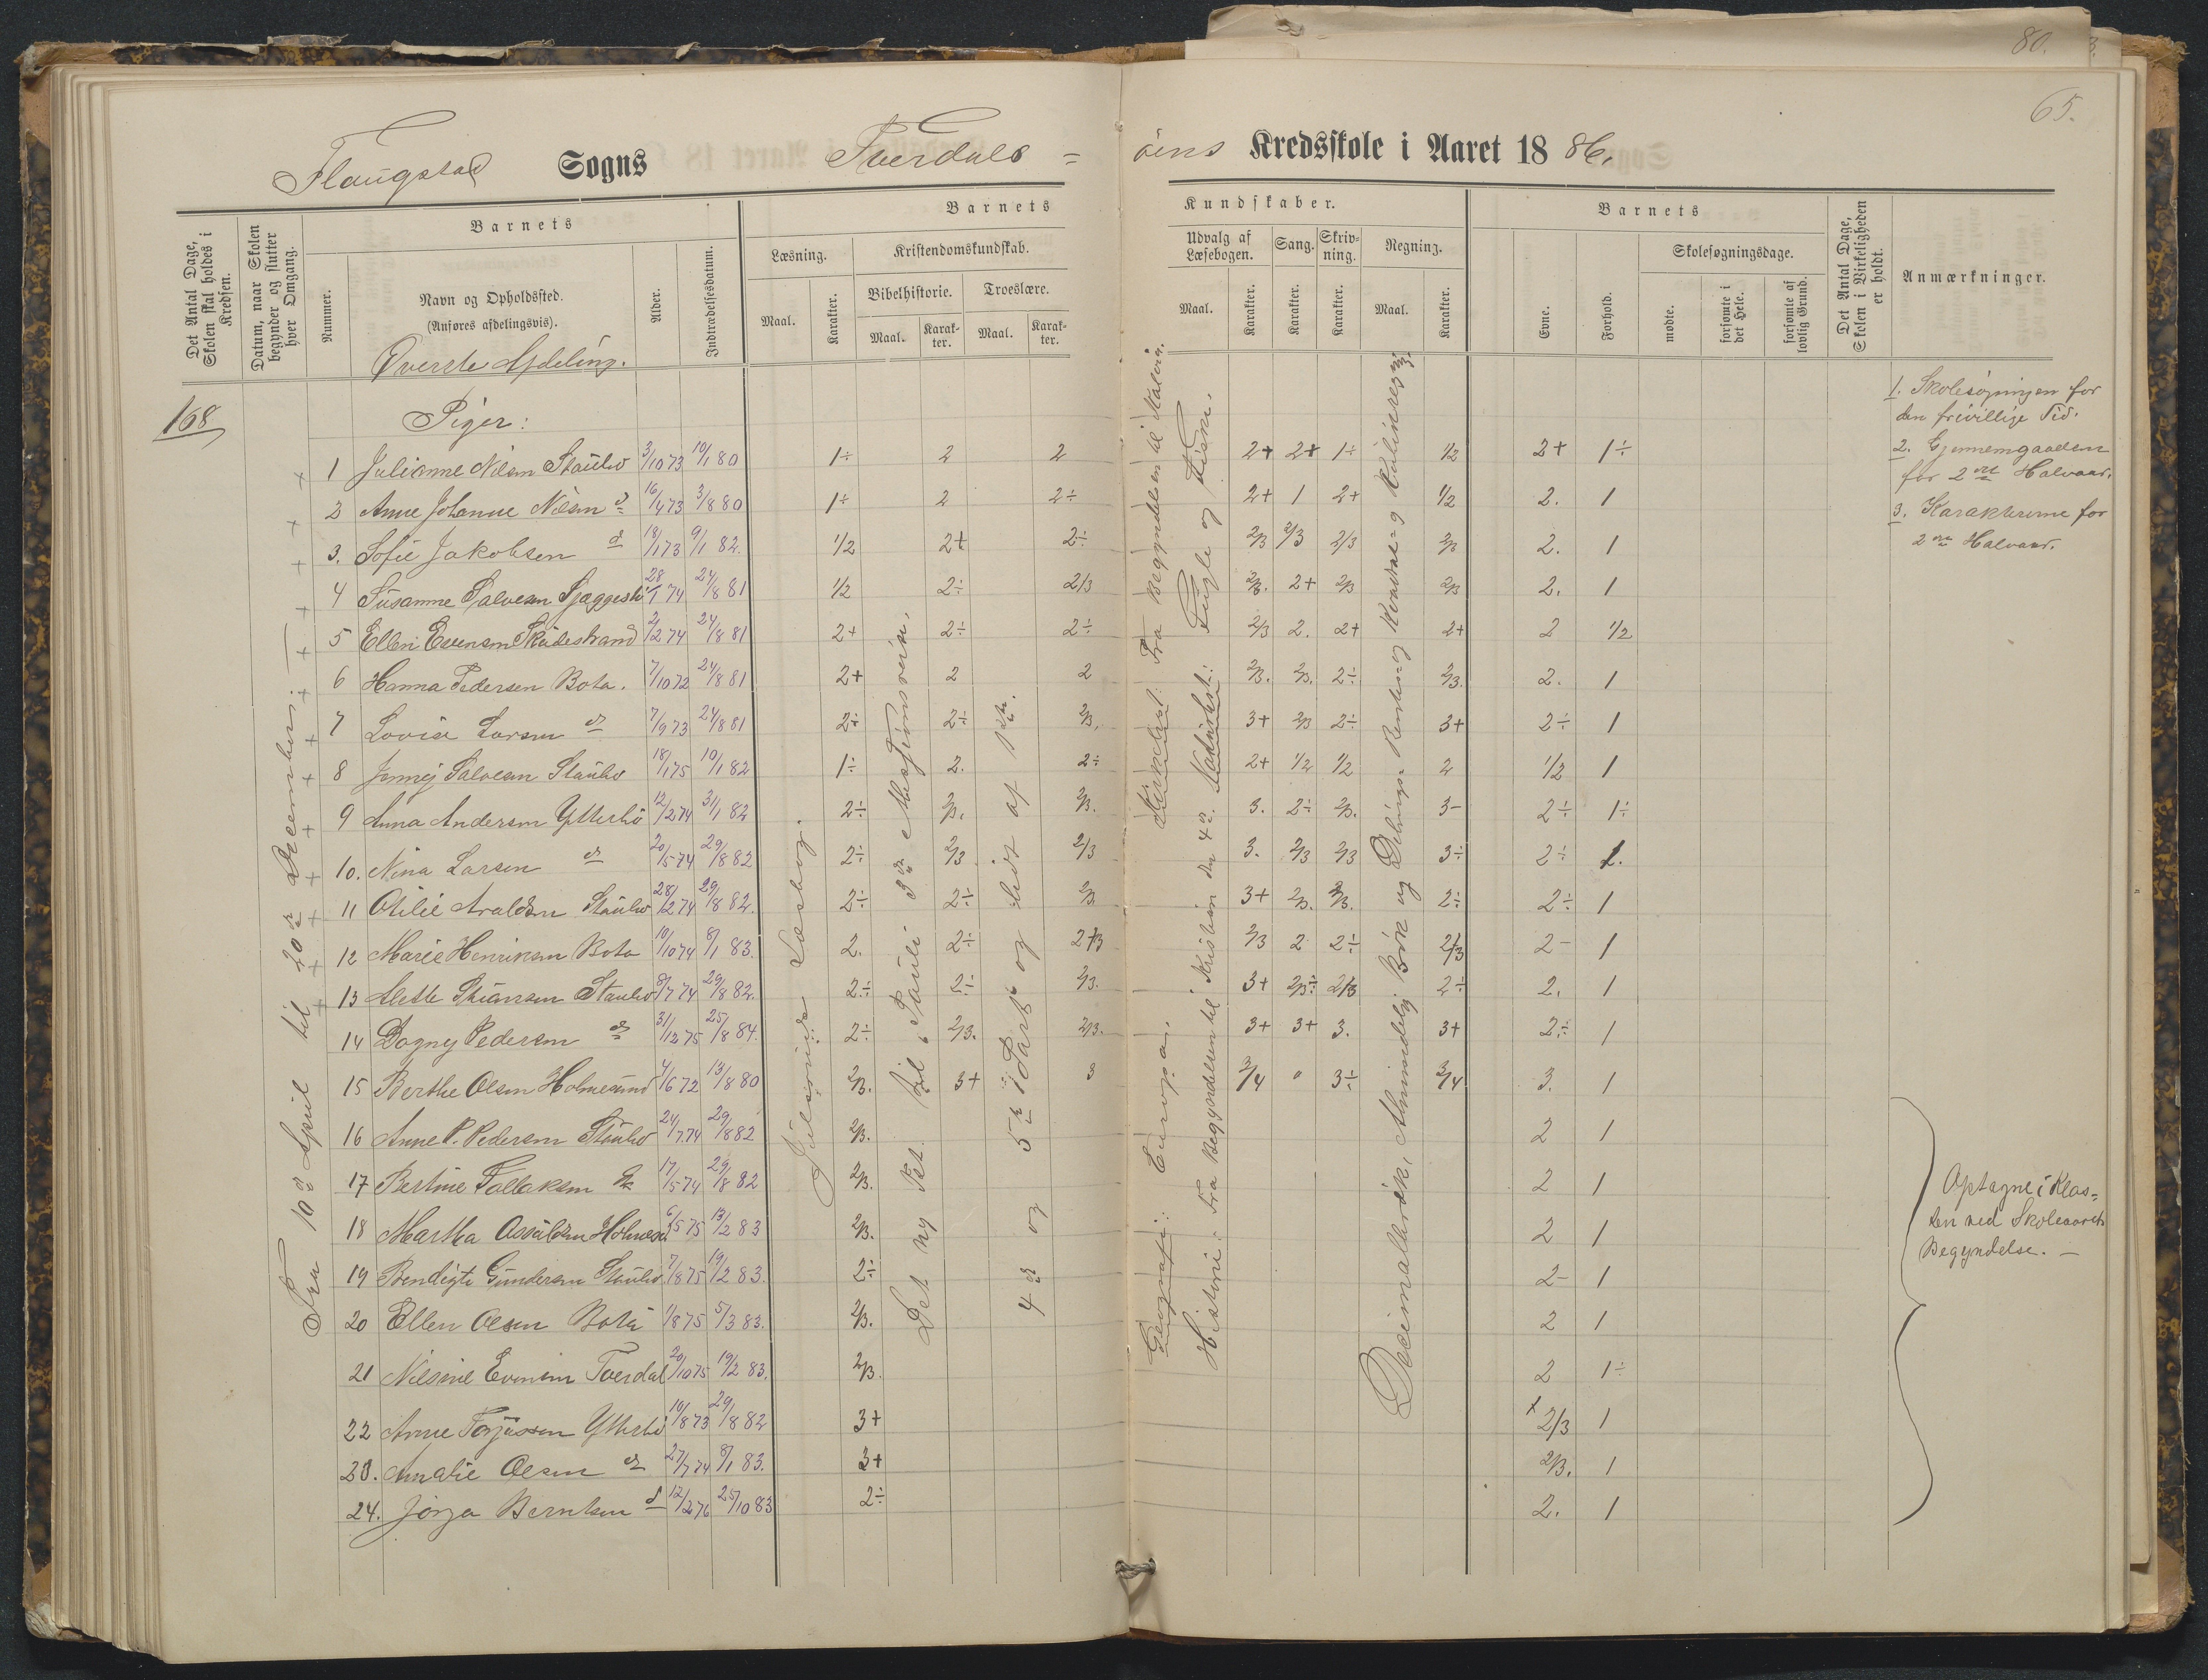 80.
65.
Flaugstad Sogns Tverdals=
öens Kredsskole i Aaret 18 86.
Det Antal Dage, Skolen skal holdes i Kredsen.
Datum, naar Skolen begynder og slutter hver Omgang.
Barnets
Nummer.
Navn og Opholdssted.
(Anføres afdelingsvis).
Alder.
Indtrædelsesdatum.
Barnets
Læsning.
Maal.
Karakter.
Kristendomskundskab.
Bibelhistorie.
Maal.
Karakter.
Troeslære.
Maal.
Karakter.
Kundskaber.
Udvalg af Læsebogen.
Maal.
Karakter.
Sang.
Karakter.
Skrivning.
Karakter.
Regning.
Maal.
Karakter.
Barnets
Evne.
Forhold.
Skolesøgningsdage.
mødte.
forsømte i det Hele.
forsømte af lovlig Grund.
Det Antal Dage, Skolen i Virkeligheden er holdt.
Anmærkninger.
Øverste Afdeling.
168
Piger:
1 Julianne Nilsen Staubø 3/10 73 10/1 80 1÷ 2 2 2+ 2+ 1÷ 1/2 2+ 1÷
2 Anne Johanne Nilsen d° 16/4 73 3/8 80 1÷ 2 2÷ 2+ 1 2+ 1/2 2. 1
3. Sofie Jakobsen d° 18/1 73 9/1 82. 1/2 2+ 2÷ 2/3 2/3 2/3 2/3 2. 1
4 Susanne Salvesen 28/1 74 24/8 81 1/2 2÷ 2/3 2/3. 2+ 2/3 2/3 2. 1
5 Ellen Evensen Skudestrand 2/2 74 24/8 81 2+ 2÷ 2÷ 2/3 2. 2+ 2+ 2 1/2
6 Hanna Pedersen Bota. 7/10 72 24/8 81 2+ 2 2 2/3. 2/3. 2÷ 2/3. 2. 1
7 Lovise Larsen d° 7/9 73 24/8 81 2÷ 2÷ 2/3. 3+ 2/3 2÷ 3+ 2÷ 1
8 Jenny Salvesen Staubø 18/1 75 10/1 82 1÷ 2. 2÷ 2+ 1/2 1/2 2 1/2 1
9 Anna Andersen Ytterbø 12/2 74 31/1 82 2÷ 2/3. 2/3. 3. 2÷ 2/3. 3- 2÷ 1÷
10. Nina Larsen d° 20/5 74 29/8 82 2÷ 2/3 2/3 3. 2/3 2/3 3÷ 2÷ 1.
11 Otilie Araldsen Staubø 28/2 74 29/8 82. 2÷ 2÷ 2/3 3+ 2/3. 2/3. 2÷ 2÷ 1
12 Marie Henriksen Bota 10/10 74 8/1 83. 2. 2÷ 2/3 2/3 2 2÷ 2/3 2- 1
13 Alette Stiansen Staubø 8/7 74 29/8 82. 2÷ 2÷ 2/3. 3+ 2/3÷ 2/3 2÷ 2. 1
14 Dagny Pedersen d° 31/12 75 25/8 84. 2÷ 2/3. 2/3. 3+ 3+ 3. 3+ 2÷ 1
15 Berthe Olsen Holmesund 4/6 72 13/8 80 2/3. 3+ 3 3/4 " 3÷ 3/4 3. 1
16 Anne P. Pedersen Staubø 24/7 74 29/8 82 2/3. 2 1
17 Bertine Tallaksen d° 17/5 74 29/8 82 2/3. 2 1
18 Martha Osvaldsen Holmesd 6/5 75 13/2 83 2/3. 2 1
19 Bendigte Gundersen Staubø 7/8 75 19/2 83. 2÷ 2- 1
20 Ellen Olsen Bota 1/8 75 5/3 83. 2/3. 2 1
21 Nilsine Evensen Tverdal 20/10 75 19/2 83. 2/3. 2 1÷
22 Anne Terjussen Ytterbø 10/8 73 29/8 82 3+ 2/3 1
23. Amalie Olsen d° 27/7 74 8/1 83. 3+ 2/3. 1
24. Jørga Berntsen d° 12/2 76 25/10 83 2÷ 2. 1
Fra 10de April til 20de December:
Læsebog.
Det ny Tst. til Pauli 3die Missionsreise.
4de og 5te Part og lidt af 1ste.
Geografi: Europa.
Historie: Fra Begyndelsen til Kristian den 4de. Naturhist: Fugle og Fiske.
Decimalbrøk, Almindelig Brøk og Delings-
1. Skolesøgningen for
den frivillige Tid.
2. Gjennemgaaelsen
for 2det Halvaar.
3. Karaktererne for
2det Halvaar.
Optagne i Klas=
sen ved Skoleaarets
Begyndelse. —